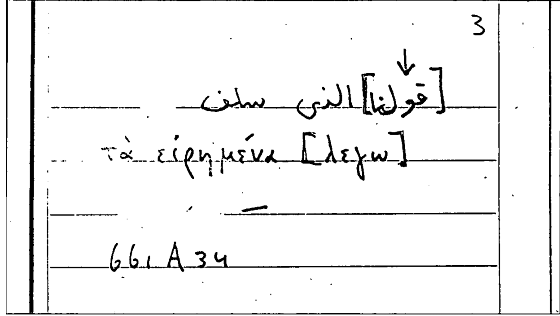 3
↓
[قولنا] الذى سلف
τὰ εἰρημένα [λεγω]
—
661 A 34